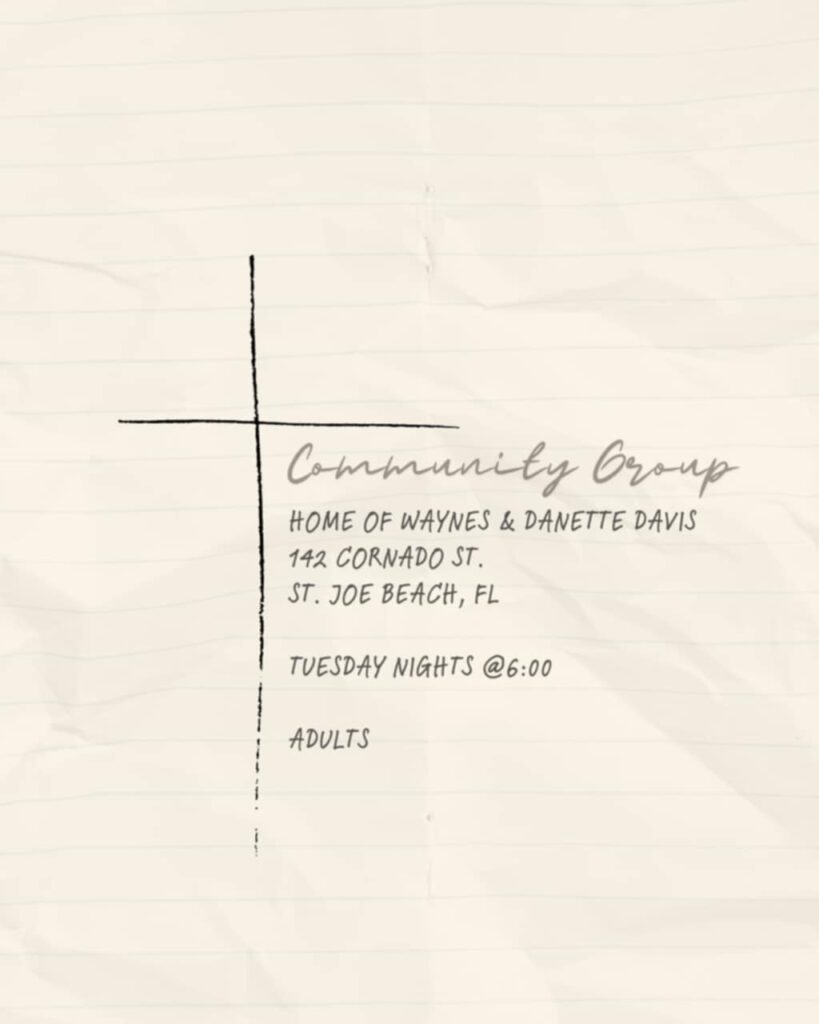 Community Group
HOME OF WAYNES & DANETTE DAVIS
142 CORNADO ST.
ST. JOE BEACH, FL
TUESDAY NIGHTS @6:00
ADULTS